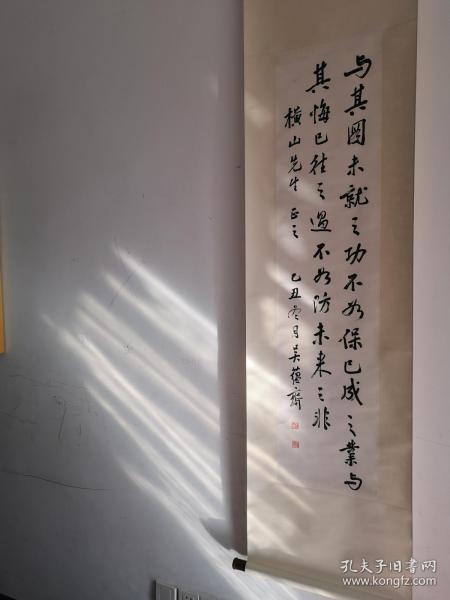 与其图未就之功不如保已成之业与
其悔已往之过不如防未来之非
横山先生正之 己丑 月吴蕴斋
孔夫子旧书网
www.kongfz.com